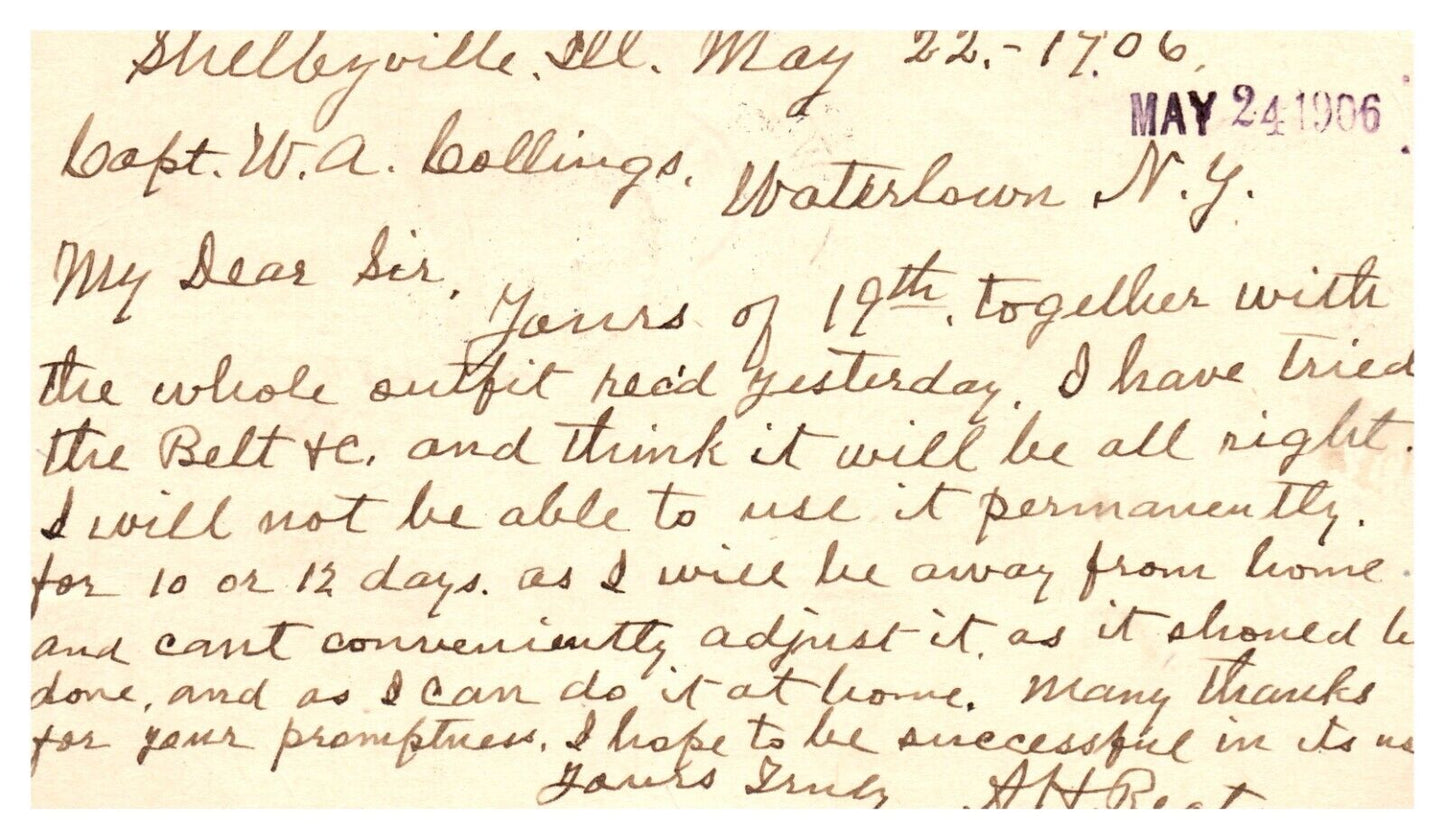 Shelbyville. Ill. May 22.- 1906.
MAY 24 1906
Capt. W. A. Collings.
Watertown N. Y.
My Dear Sir.
Yours of 19th. together with
the whole outfit rec'd yesterday. I have tried
the Belt &C. and think it will be all right.
I will not be able to use it permanently.
for 10 or 12 days. as I will be away from home.
and cant conveniently adjust it. as it should be
done, and as I can do it at home. Many thanks
for your promptness. I hope to be successful in its us
Yours Truly A H